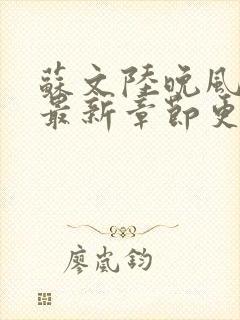 蘇文陸晚風
最新章節更
廖嵐鈞